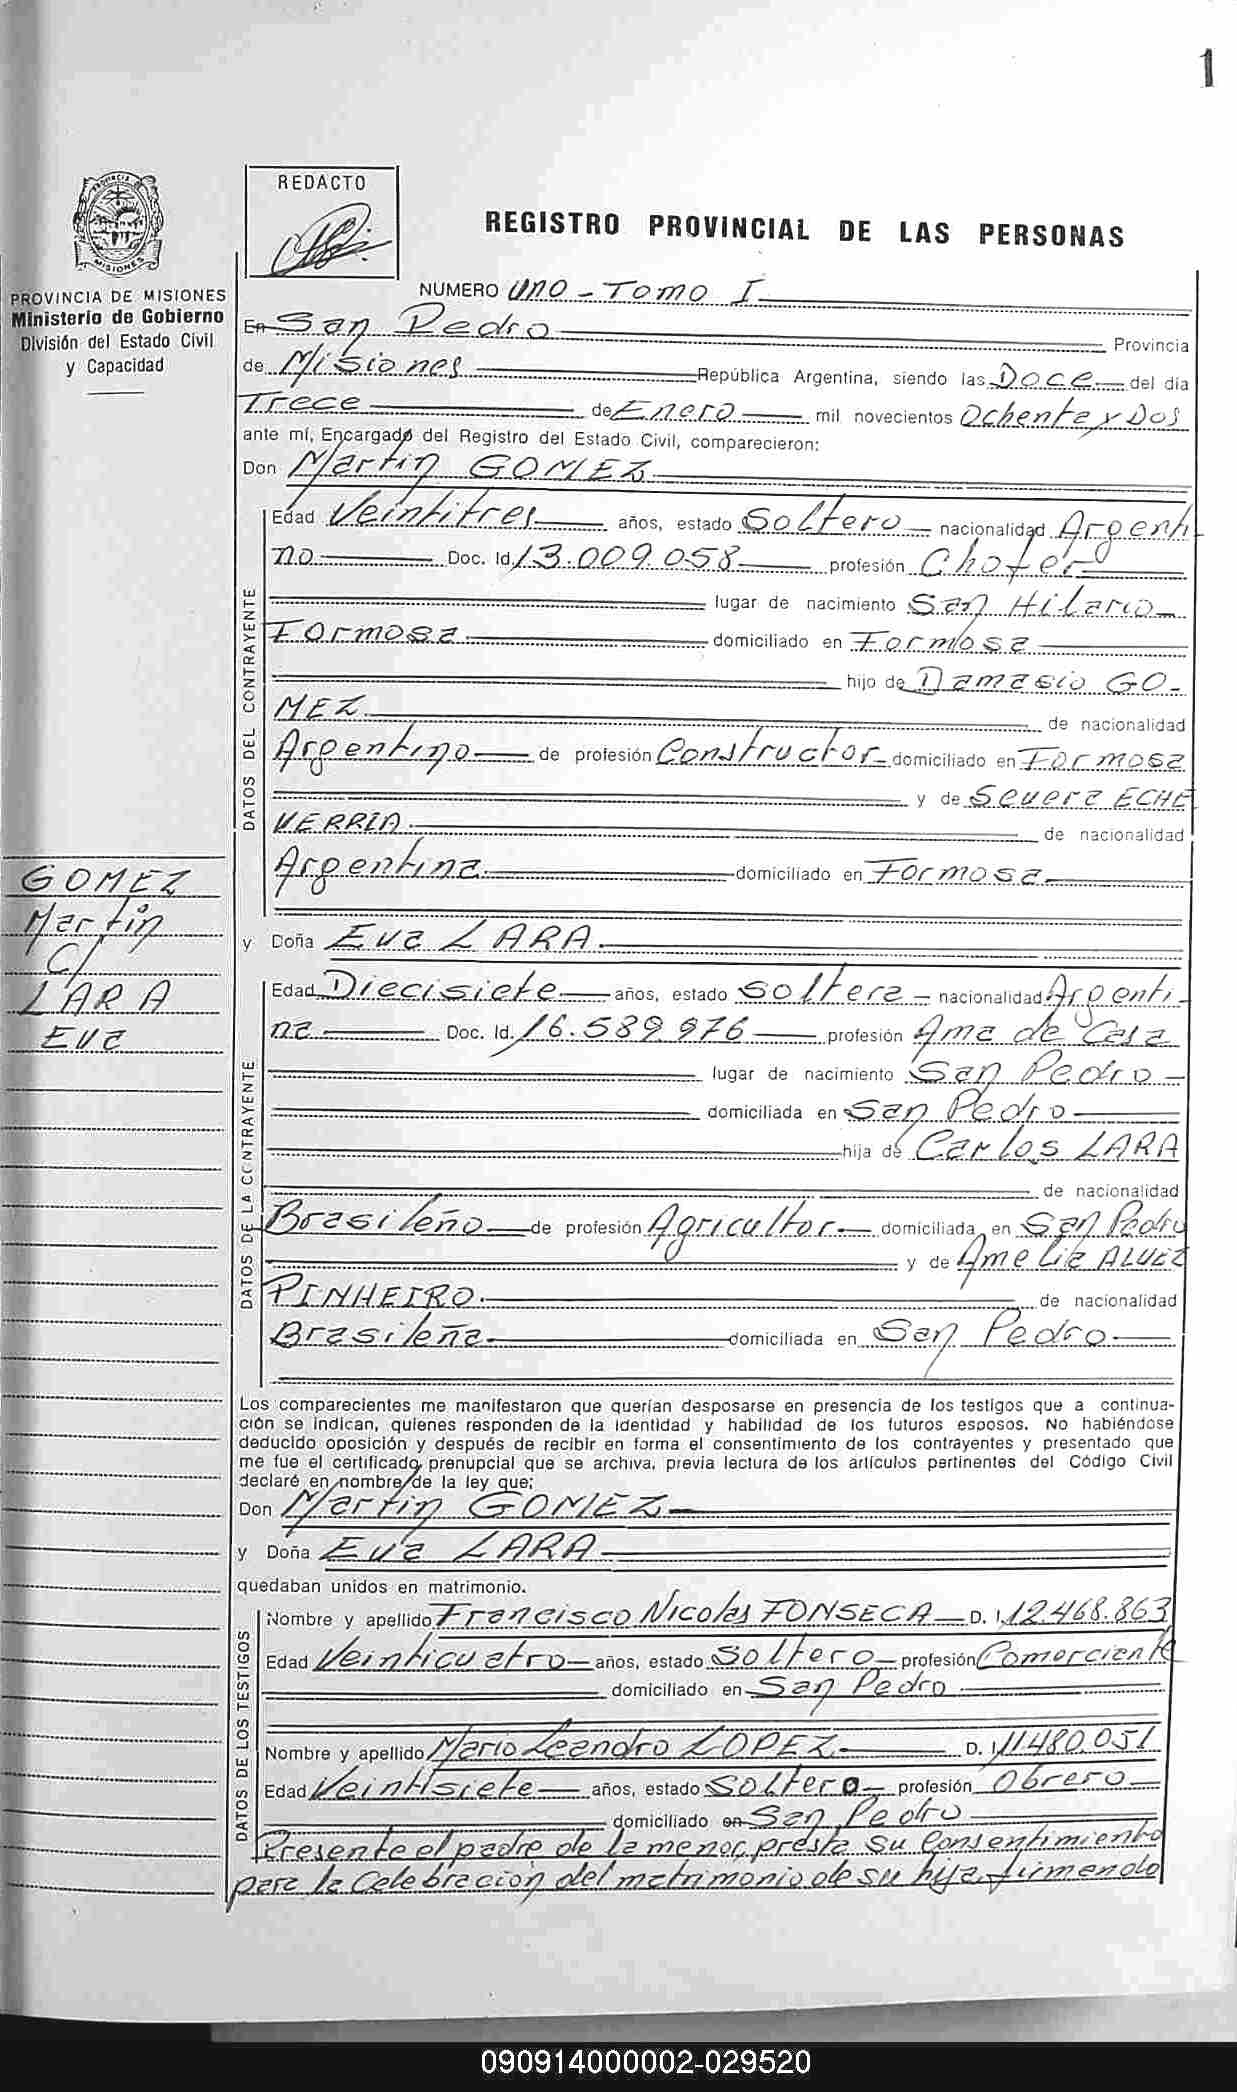 1
REDACTO
REGISTRO PROVINCIAL DE LAS PERSONAS
PROVINCIA DE MISIONES
Ministerio de Gobierno
División del Estado Civil
y Capacidad
NUMERO UNO - TOMO I
En San Pedro Provincia
de Misiones República Argentina, siendo las Doce del día
Trece de Enero mil novecientos Ochenta y Dos
ante mí, Encargado del Registro del Estado Civil, comparecieron:
Don Martin GOMEZ
DATOS DEL CONTRAYENTE
Edad Veintitres años, estado Soltero nacionalidad Argenti
no Doc. Id. 13.009.058 profesión Chofer
lugar de nacimiento San Hilario
Formosa domiciliado en Formosa
hijo de Damasio GO-
MEZ de nacionalidad
Argentino de profesión Constructor domiciliado en Formosa
y de Severa ECHE
VERRIA de nacionalidad
Argentina domiciliado en Formosa
GOMEZ
Martin
C/
LARA
Eva
y Doña Eva LARA
DATOS DE LA CONTRAYENTE
Edad Diecisiete años, estado soltera nacionalidad Argenti-
na Doc. Id. 16.589.976 profesión Ama de Casa
lugar de nacimiento San Pedro
domiciliada en San Pedro
hija de Carlos LARA
de nacionalidad
Brasileño de profesión Agricultor domiciliada en San Pedro
y de Amelia ALVEZ
PINHEIRO de nacionalidad
Brasileña domiciliada en San Pedro
Los comparecientes me manifestaron que querían desposarse en presencia de los testigos que a continua-
ción se indican, quienes responden de la identidad y habilidad de los futuros esposos. No habiéndose
deducido oposición y después de recibir en forma el consentimiento de los contrayentes y presentado que
me fue el certificado prenupcial que se archiva, previa lectura de los artículos pertinentes del Código Civil
declaré en nombre de la ley que:
Don Martin GOMEZ
y Doña Eva LARA
quedaban unidos en matrimonio.
DATOS DE LOS TESTIGOS
Nombre y apellido Francisco Nicolas FONSECA D. I. 12.468.863
Edad Veinticuatro años, estado Soltero profesión Comerciante
domiciliado en San Pedro
Nombre y apellido Mario Leandro LOPEZ D. I. 11.480.051
Edad Veintisiete años, estado Soltero profesión Obrero
domiciliado en San Pedro
Presente el padre de la menor, presta su Consentimiento
para la Celebración del matrimonio de su hija, firmando
090914000002-029520